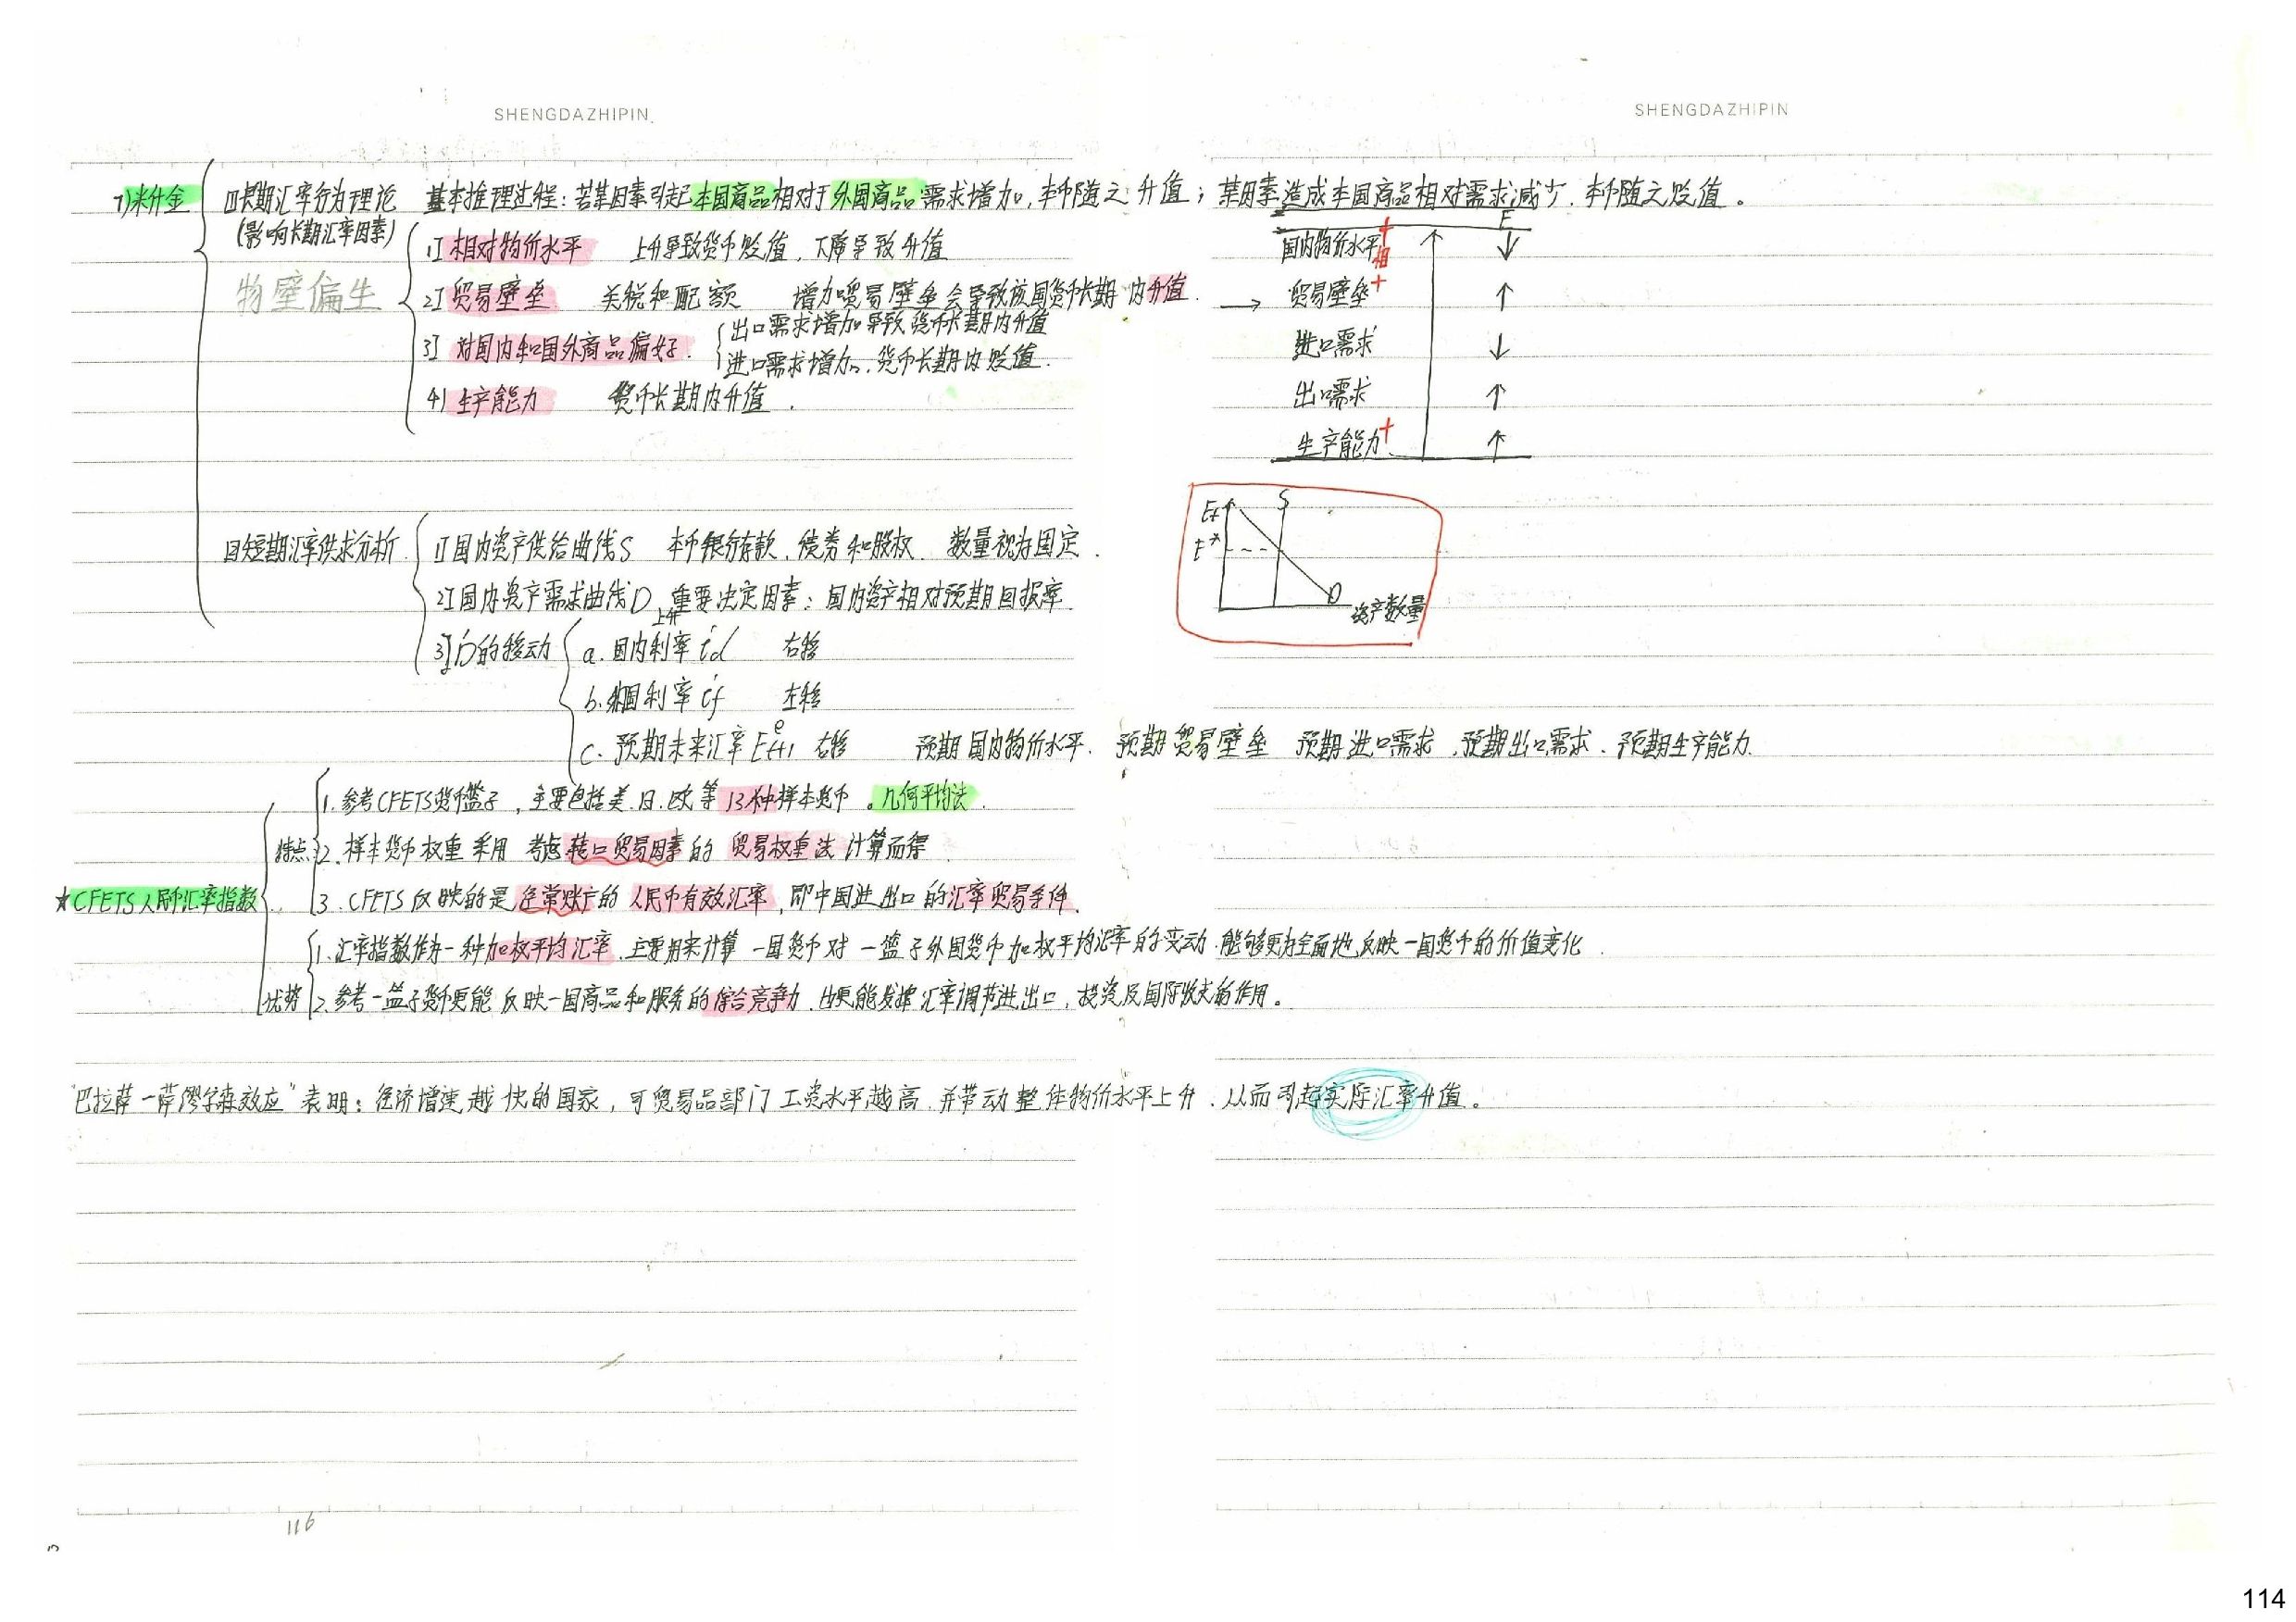 SHENGDAZHIPIN
SHENGDAZHIPIN
7)米什金
[1]长期汇率行为理论 基本推理过程:若某因素引起本国商品相对于外国商品需求增加,本币随之升值;某因素造成本国商品相对需求减少.本币随之贬值。
(影响长期汇率因素)
物壁偏生
1]相对物价水平 上升导致货币贬值,下降导致升值
2]贸易壁垒 关税和配额 增加贸易壁垒会导致该国货币长期内升值. →
3]对国内和国外商品偏好.
出口需求增加导致货币长期内升值
进口需求增加,货币长期内贬值.
4]生产能力 货币长期内升值.
E
国内物价水平 + 相 ↑ ↓
贸易壁垒+ ↑
进口需求 ↓
出口需求 ↑
生产能力+ ↑
[2]短期汇率供求分析
1]国内资产供给曲线S 本币银行存款,债券和股权 数量视为固定.
2]国内资产需求曲线D 重要决定因素:国内资产相对预期回报率
上升
3]D的移动
a.国内利率id 右移
b.外国利率if 左移
c.预期未来汇率Eet+1 右移 预期国内物价水平.预期贸易壁垒 预期进口需求,预期出口需求.预期生产能力.
Et S
E*
D
资产数量
★CFETS人民币汇率指数
特点
1.参考CFETS货币篮子,主要包括美.日.欧等13种样本货币。几何平均法.
2.样本货币权重采用 考虑转口贸易因素的 贸易权重法计算而得
3.CFETS反映的是经常账户的人民币有效汇率,即中国进出口的汇率贸易条件.
优势
1.汇率指数作为一种加权平均汇率.主要用来计算一国货币对一篮子外国货币加权平均汇率的变动.能够更为全面地反映一国货币的价值变化.
2.参考一篮子货币更能反映一国商品和服务的综合竞争力.也更能发挥汇率调节进出口,投资及国际收支的作用。
"巴拉萨-萨缪尔森效应"表明:经济增速越快的国家,可贸易品部门工资水平越高.并带动整体物价水平上升.从而引起实际汇率升值。
116
114